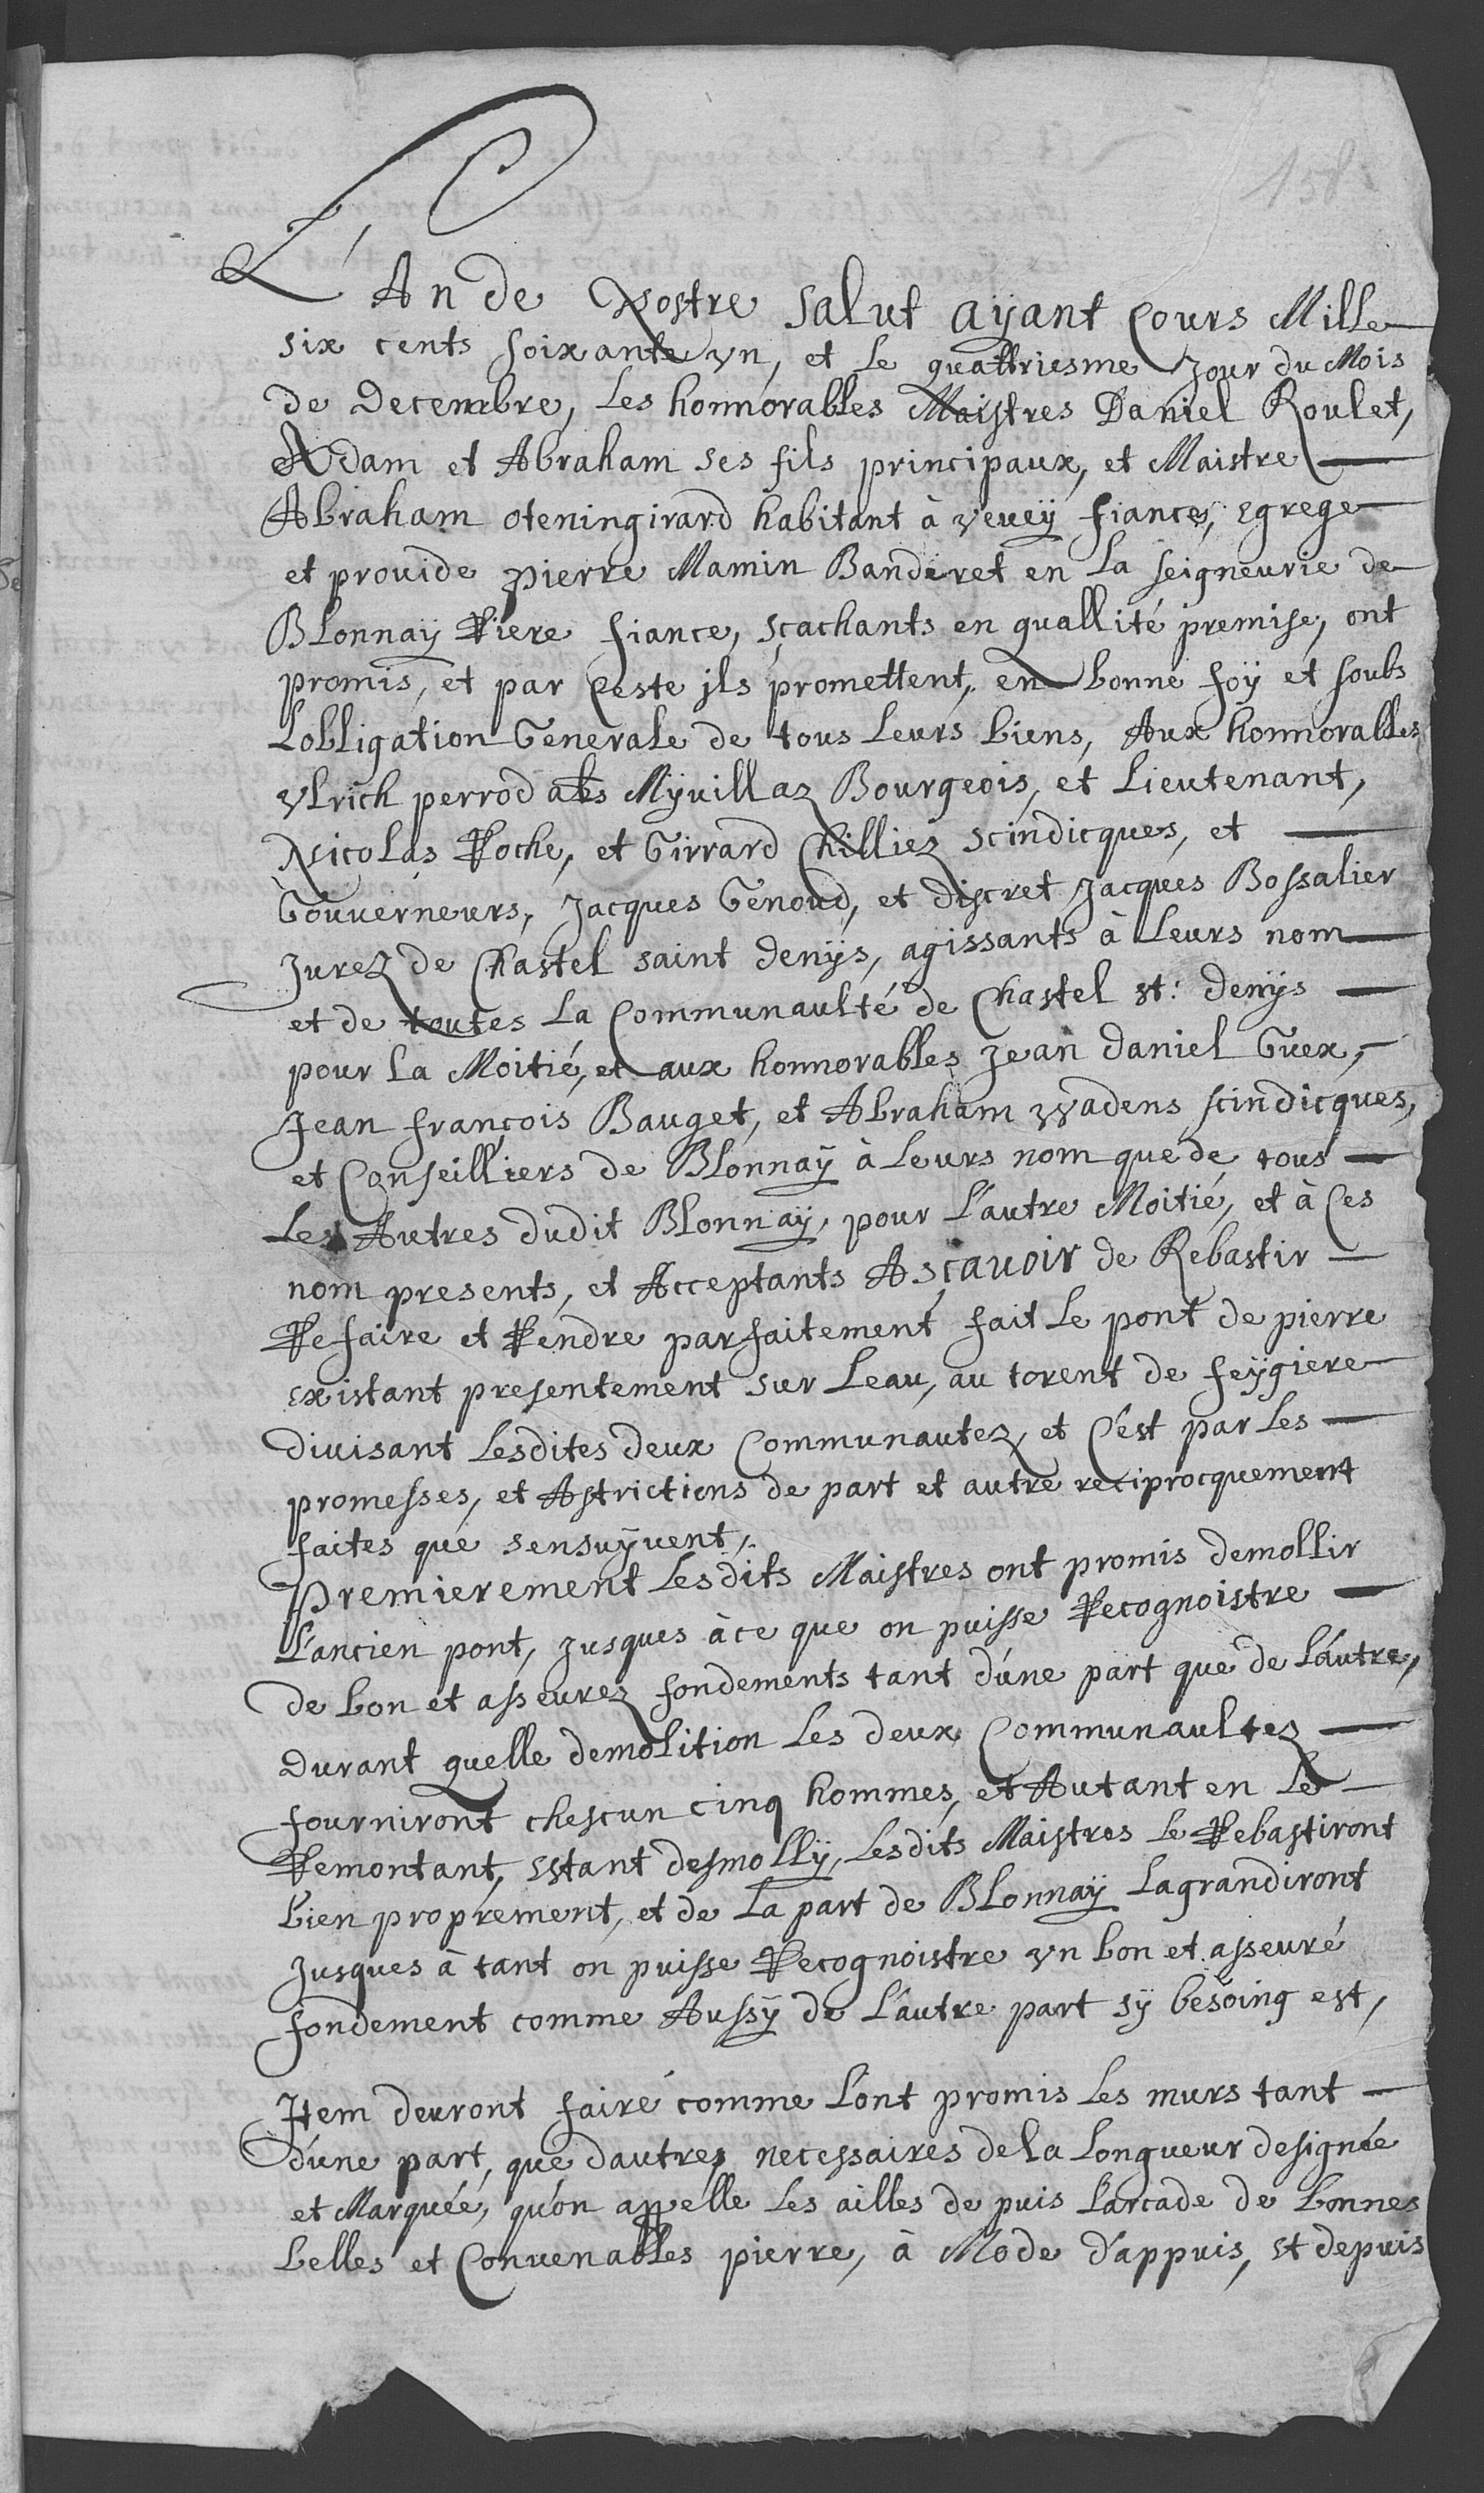 158
L'An de Nostre Salut ayant Cours Mille
six cents soixante vn, et le quattriesme Jour du Mois
de Decembre, Les honnorables Maistres Daniel Roulet,
Adam et Abraham ses fils principaux, et Maistre
Abraham oteningirard habitant à vevey fiance, Egrege
et prouide pierre Mamin Banderet en La seigneurie de
Blonnaÿ Riere fiance, sçachants en quallité premise, ont
promis, et par Ceste jls promettent, en bonne foÿ et soubs
Lobligation Generale de tous Leurs biens, Aux honnorables
vLrich perrod als Mÿuillaz Bourgeois, et Lieutenant,
Nicolas Roche, et Girrard Chilliez scindicques, et
Gouverneurs, Jacques Genoud, et discret Jacques Bossalier
Jurez de Chastel saint denÿs, agissants à Leurs nom
et de toutes La Communaulté de Chastel st: denÿs
pour La Moitié, et aux honnorables Jean daniel Guex,
Jean françois Bauget, et Abraham vvadens scindicques,
et Conseilliers de Blonnaÿ à Leurs nom que de tous
Les Autres dudit Blonnaÿ, pour L'autre Moitié, et à Ces
nom presents, et Acceptants Asçavoir de Rebastir
Refaire et Rendre parfaitement fait Le pont de pierre
Existant presentement sur Leau, au torent de feÿgiere
diuisant Lesdites deux Communautez, et C'est par Les
promesses, et Astrictions de part et autre reciprocquement
faites que sensuÿvent,
Premierement Lesdits Maistres ont promis demollir
L'ancien pont, Jusques à ce que on puisse Recognoistre
de bon et asseurez fondements tant d'une part que de L'autre,
Durant quelle demolition Les deux Communaultez
fourniront chescun cinq hommes, et Autant en Le
Remontant, Estant desmollÿ, Lesdits Maistres Le Rebastiront
bien proprement, et de La part de Blonnaÿ Lagrandiront
Jusques à tant on puisse Recognoistre vn bon et asseuré
fondement comme Aussÿ de L'autre part sÿ besoing est,
Item deuront faire comme L'ont promis Les murs tant
d'une part, que dautres necessaires de La Longueur designée
et Marquée, qu'on appelle Les ailles de puis L'arcade de bonnes
belles et Convenables pierre, à Mode d'appuis, et depuis